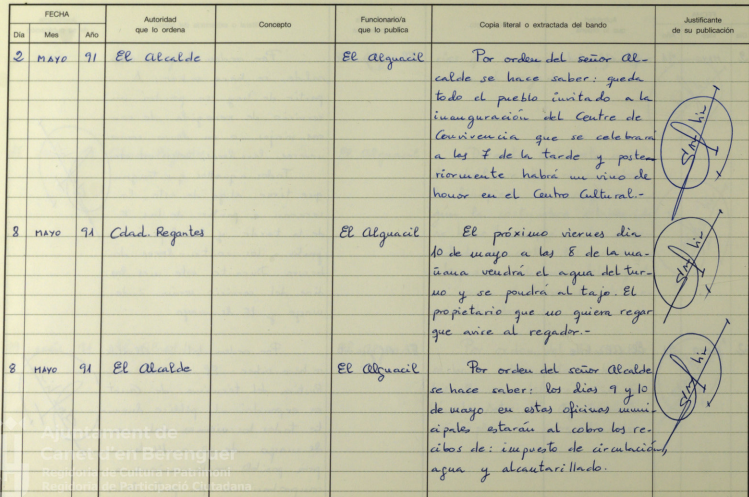 FECHA
Día Mes Año
Autoridad
que lo ordena
Concepto
Funcionario/a
que lo publica
Copia literal o extractada del bando
Justificante
de su publicación
2 MAYO 91 El Alcalde El Alguacil Por orden del señor Al-
calde se hace saber: queda
todo el pueblo invitado a la
inauguración del Centre de
Convivencia que se celebrará
a las 7 de la tarde y poste-
riormente habrá un vino de
honor en el Centro Cultural.-
8 MAYO 91 Cdad. Regantes El Alguacil El próximo viernes dia
10 de mayo a las 8 de la ma-
ñana vendrá el agua del tur-
no y se pondrá al tajo. El
propietario que no quiera regar
que avice al regador.-
8 MAYO 91 El Alcalde El Alguacil Por orden del señor Alcalde
se hace saber: los dias 9 y 10
de mayo en estas oficinas muni-
cipales estarán al cobro los re-
cibos de: impuesto de circulación,
agua y alcantarillado.
Ajuntament de
Carlet d'en Berenguer
Regidoria de Cultura i Patrimoni
Regidoria de Participació Ciutadana